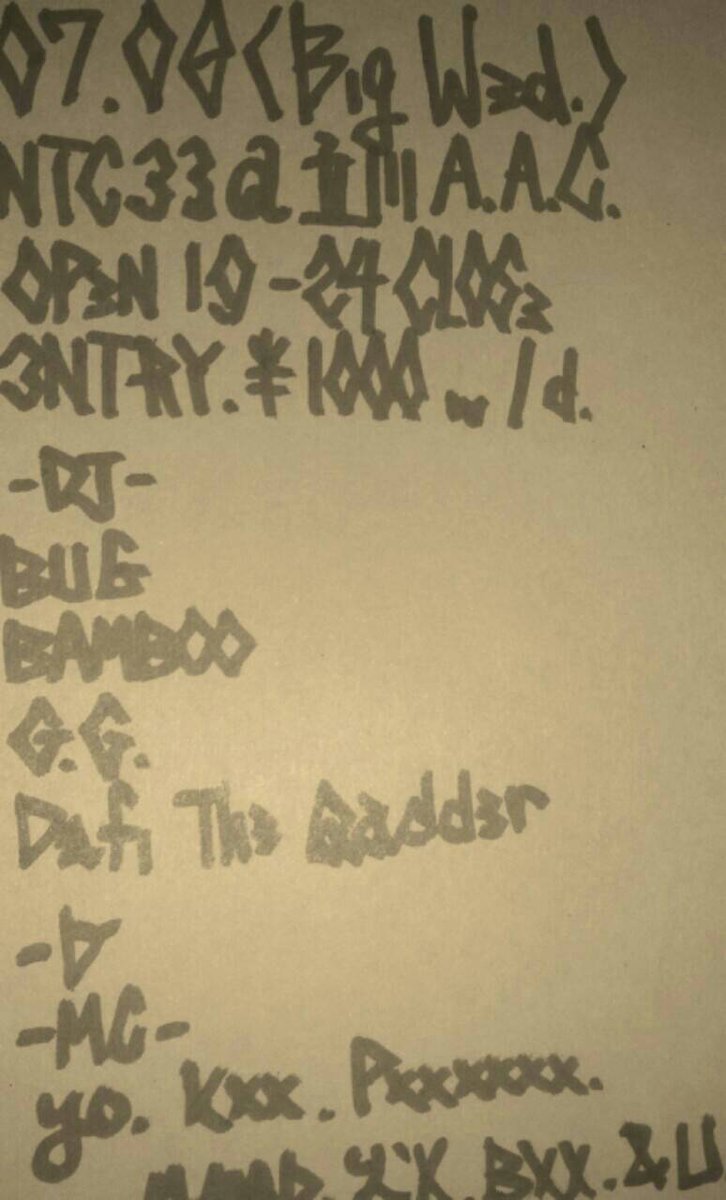 07.08 (Big W3d.)
NTC33 @ 立川 A.A.C.
OP3N 19-24 CLOS3
3NTRY. ¥1000 w/d.
-DJ-
BUG
BAMBOO
G.G.
Dafi Th3 Gadd3r
-MC-
yo. Kxx. Pxxxxxx.
BXX. & U